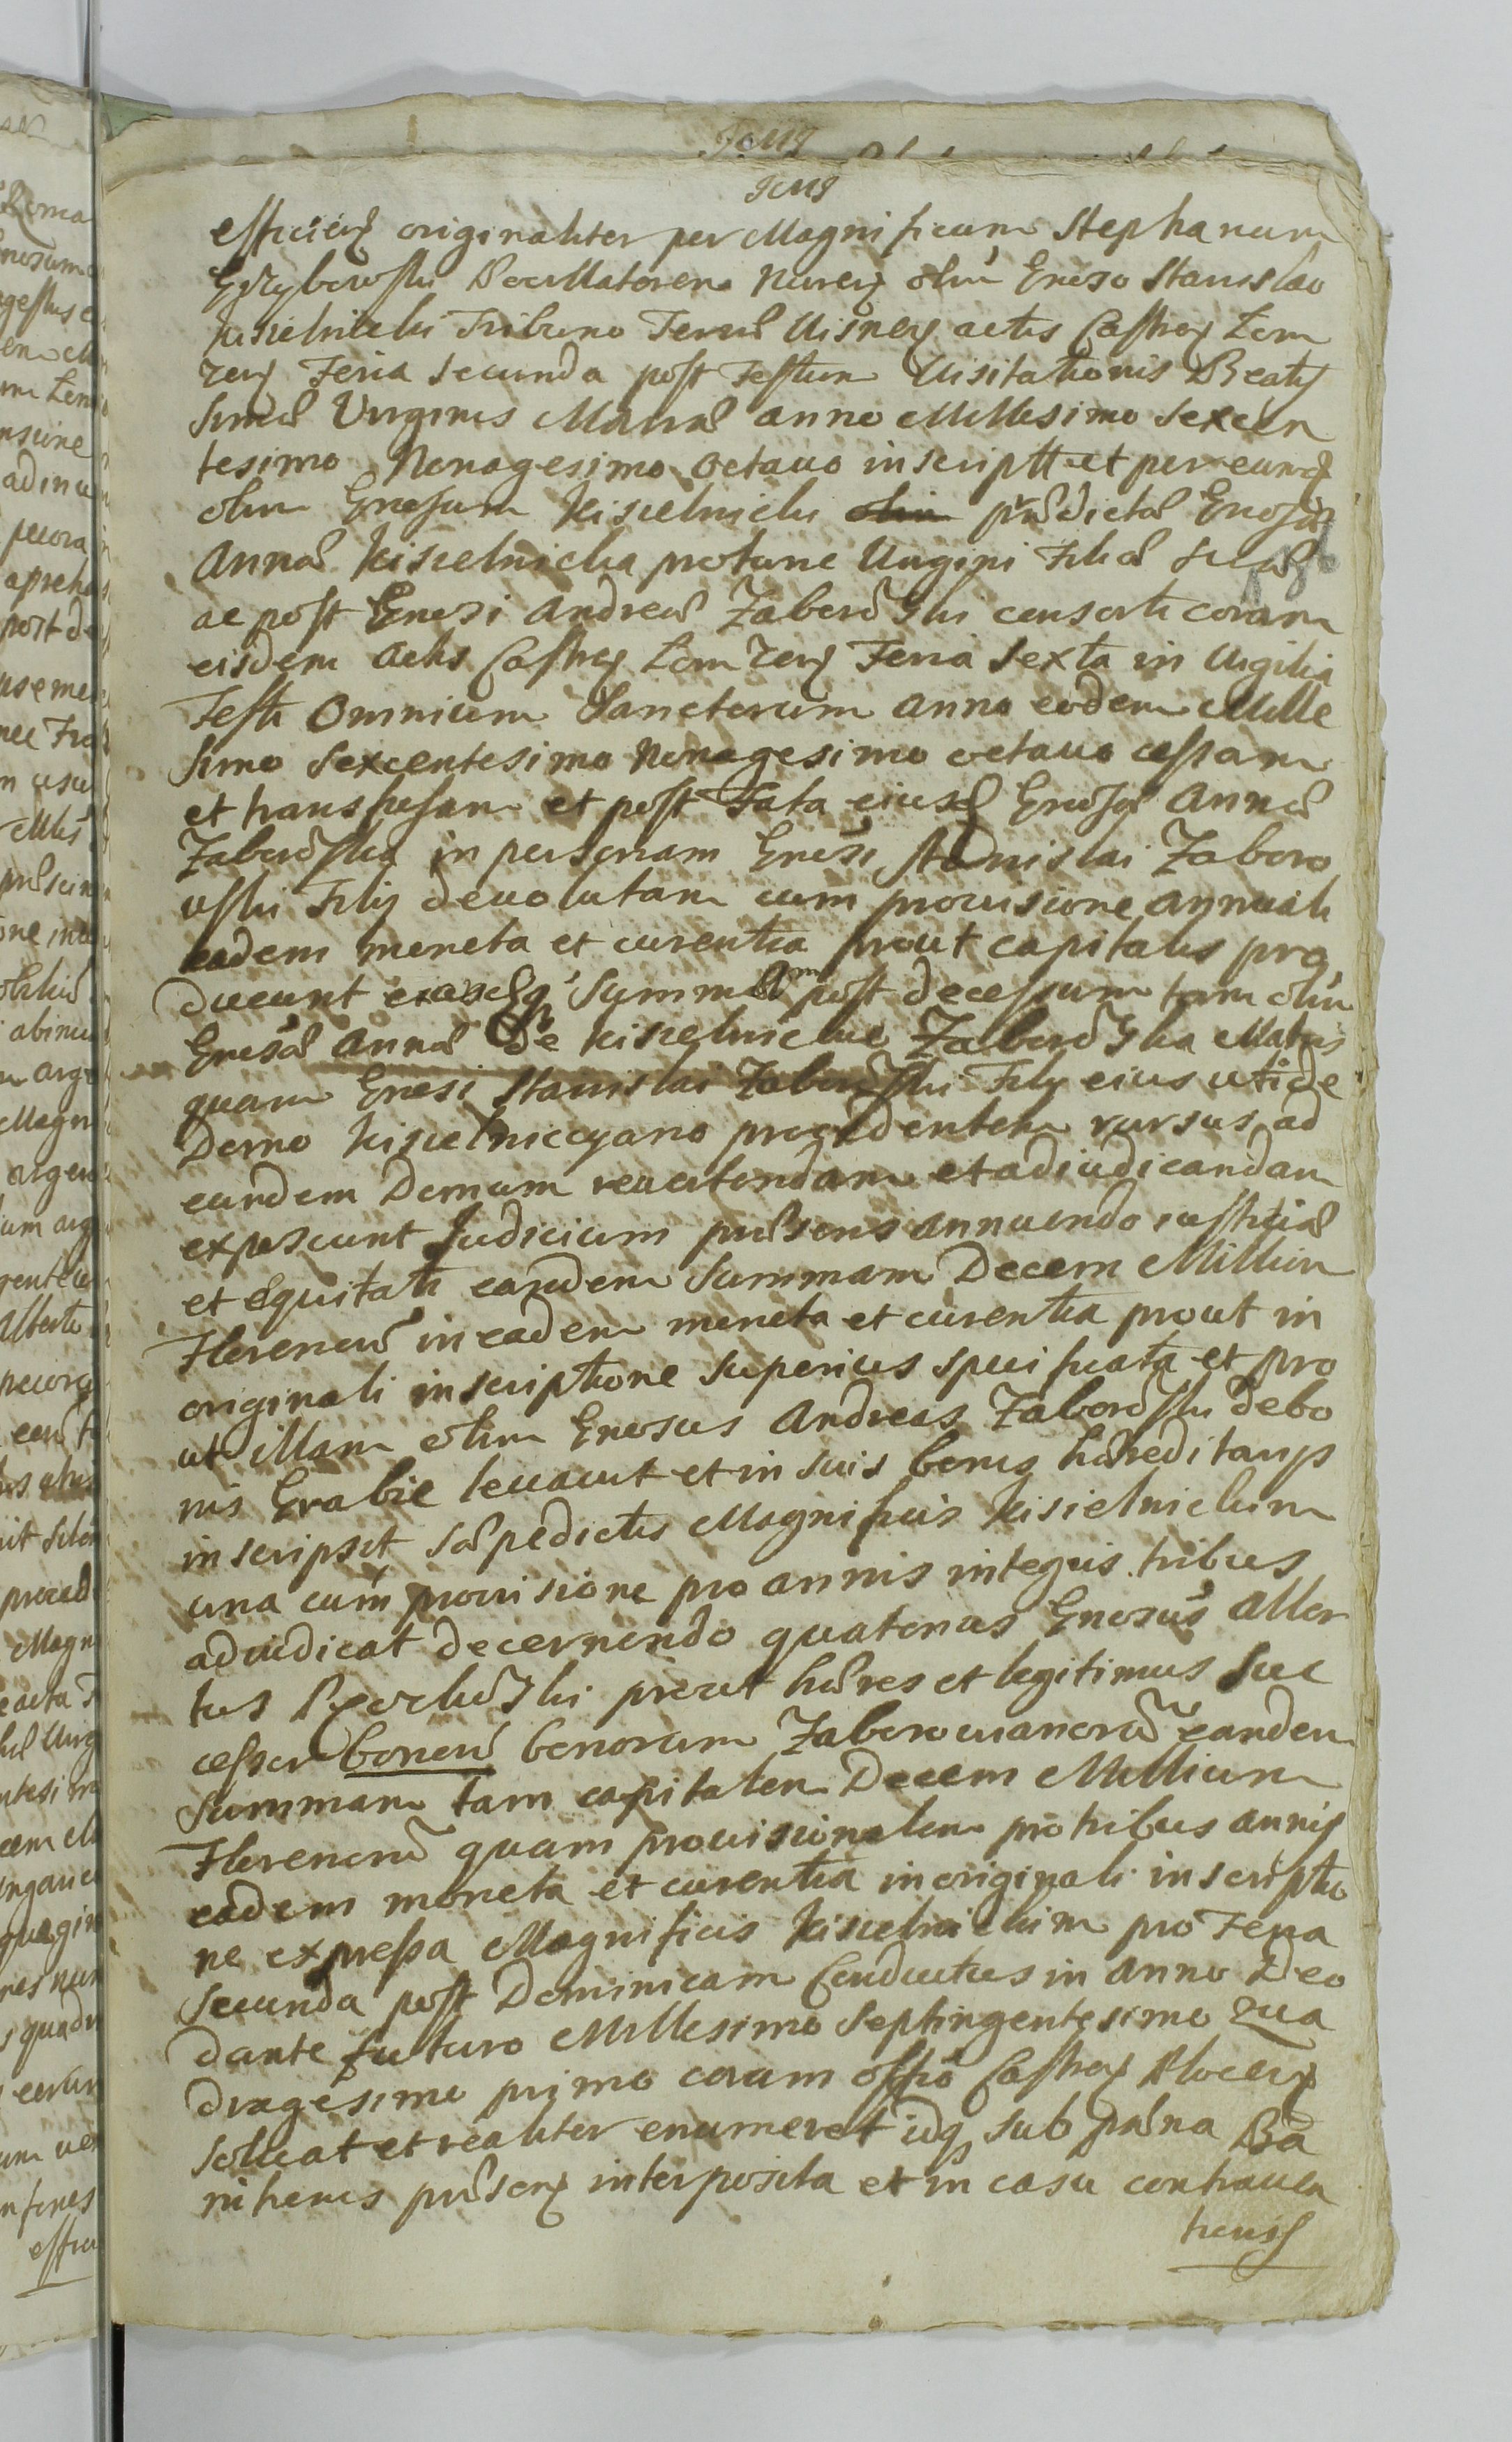 efficien originaliter per Magnificum Stephanum
Grzybowski Bocullatorem Nuren olim Gnoso Stanislao
Kisielnicki Tribuno Terræ Uisnen actis Castren Lom
zen Feria secunda post Festum Uisitationis Beatis
simæ Virginis Mariæ anno Millesimo Sexcen
tesimo Nonagesimo octauo inscriptt et per eund
olim Gnosum Kisielnicki olim prædictæ Gnosæ
Annæ Kisielnicka protunc Uirgini Filiæ suæ
ac post Gnosi Andreæ Zaborowski consorti coram
eisdem Actis Castren Lomzen Feria Sexta in Uigilia
Festi Omnium Sanctorum anno eodem Mille
simo Sexcentesimo Nonagesimo octauo cessam
et transfusam et post Fata eiusd Gnosæ Annæ
Zaborowska in personam Gnosi Stanislai Zaboro
wski Filij deuolutam cum prouisione annuali
eadem moneta et curentia prout capitalis pro
ducunt eiasdq Summam post decessum tam olim
Gnosæ Annæ De Kisielnickie Zaborowska Matris
quam Gnosi Stanislai Zaborowski Filij eius uti de
Domo Kisielnicciano procedentem rursus ad
eundem Domum reuertendam et adiudicandam
exposcunt Judicium præsens annuendo iustitiæ
et equitati eandem Summam Decem Millium
Florenorum in eadem moneta et curentia prout in
originali inscriptione superius specificata et pro
ut illam olim Gnosus Andreas Zaborowski de bo
nis Grabie leuauit et in suis bonis hæreditarijs
inscripsit sæpedictis Magnificis Kisielnickim
una cum prouisione pro annis integris tribus
adiudicat decernendo quatenus Gnosus Alber
tus prout hæres et legitimus suc
cessor bonorū bonorum Zaborouianorū eandem
Summam tam capitalem Decem Millium
Florenorū quam prouisionalem pro tribus annis
eadem moneta et curentia in originali inscriptio
ne expressa Magnificis Kisielnickim pro Feria
Secunda post Dominicam Conductus in anno Deo
dante futuro Millesimo Septingentesimo Qua
dragesimo primo coram offio Castren Plocen
soluat et realiter enumeret idq sub pæna Ba
nitionis præsen interposita et in casu contrauen
tionis